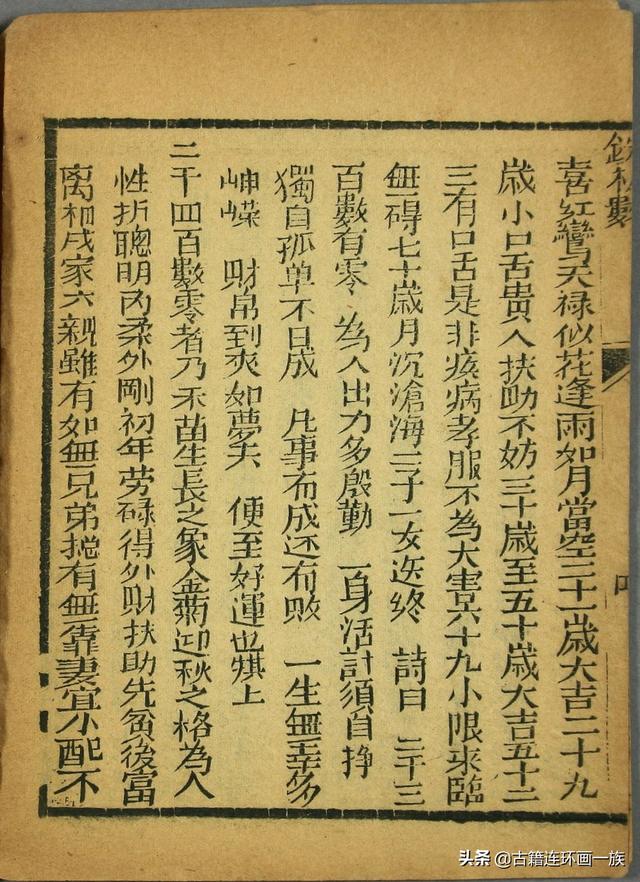 數
喜紅鸞与天禄似花逢雨如月當空二十一歲大吉二十九
歲小口舌貴人扶助不妨三十歲至五十歲大吉五十二
三有口舌是非疾病孝服不為大害六十九小限來臨
無碍七十歲月沉滄海二子一女送終 詩曰 二千三
百數有零 為人出力多殷勤 一身活計須自挣
獨自孤单不日成 凡事布成还有敗 一生無幸多
財帛到来如夢失 便至好運也 上
二千四百數零者乃禾苗生長之象金菊迎秋之格為人
性折聰明内柔外剛初年劳碌得外財扶助先貧後富
离祖成家六親雖有如無兄弟搃有無靠妻宜小配不
头条 @古籍连环画一族